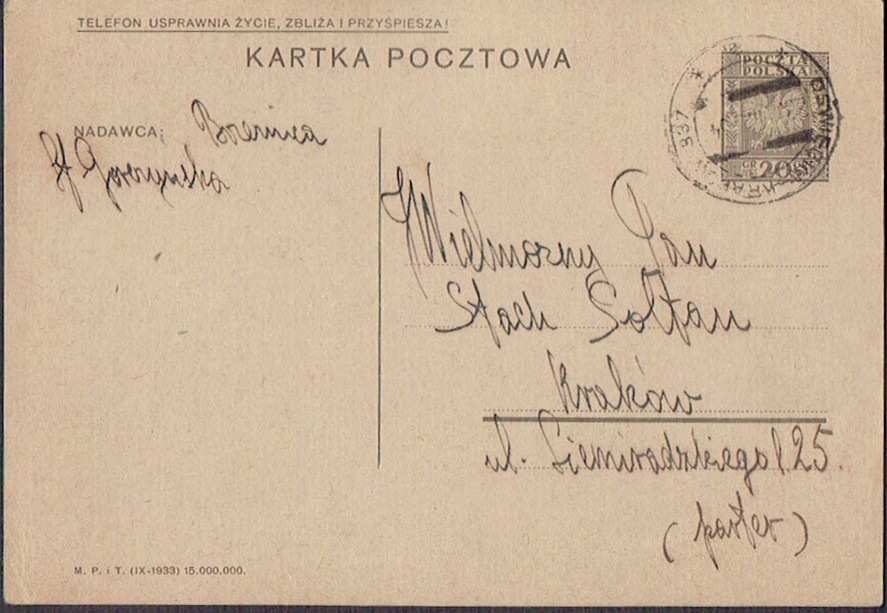 TELEFON USPRAWNIA ŻYCIE, ZBLIŻA I PRZYŚPIESZA!
KARTKA POCZTOWA
POCZTA
POLSKA
GR 20 GR
837
NADAWCA:
Gorczyńska
JWielmożny Pan
Stach Sołtan
Kraków
ul. Siemiradzkiego l. 25.
(parter)
M. P. i T. (IX-1933) 15.000.000.